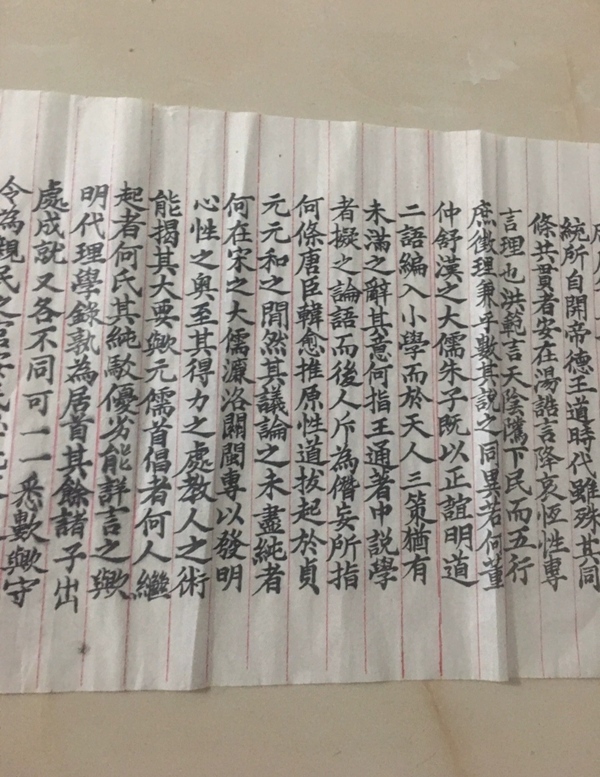 統所自開帝德王道時代雖殊其同
條共貫者安在湯誥言降衷恆性專
言理也洪範言天陰隲下民而五行
庶徵理兼乎數其說之同異若何董
仲舒漢之大儒朱子既以正誼明道
二語編入小學而於天人三策猶有
未滿之辭其意何指王通著中說學
者擬之論語而後人斥為僭妄所指
何條唐臣韓愈推原性道拔起於貞
元元和之間然其議論之未盡純者
何在宋之大儒濂洛關閩專以發明
心性之奧至其得力之處教人之術
能揭其大要歟元儒首倡者何人繼
起者何氏其純駁優劣能詳言之歟
明代理學錄孰為居首其餘諸子出
處成就又各不同可一一悉數歟守
令為親民之官安民